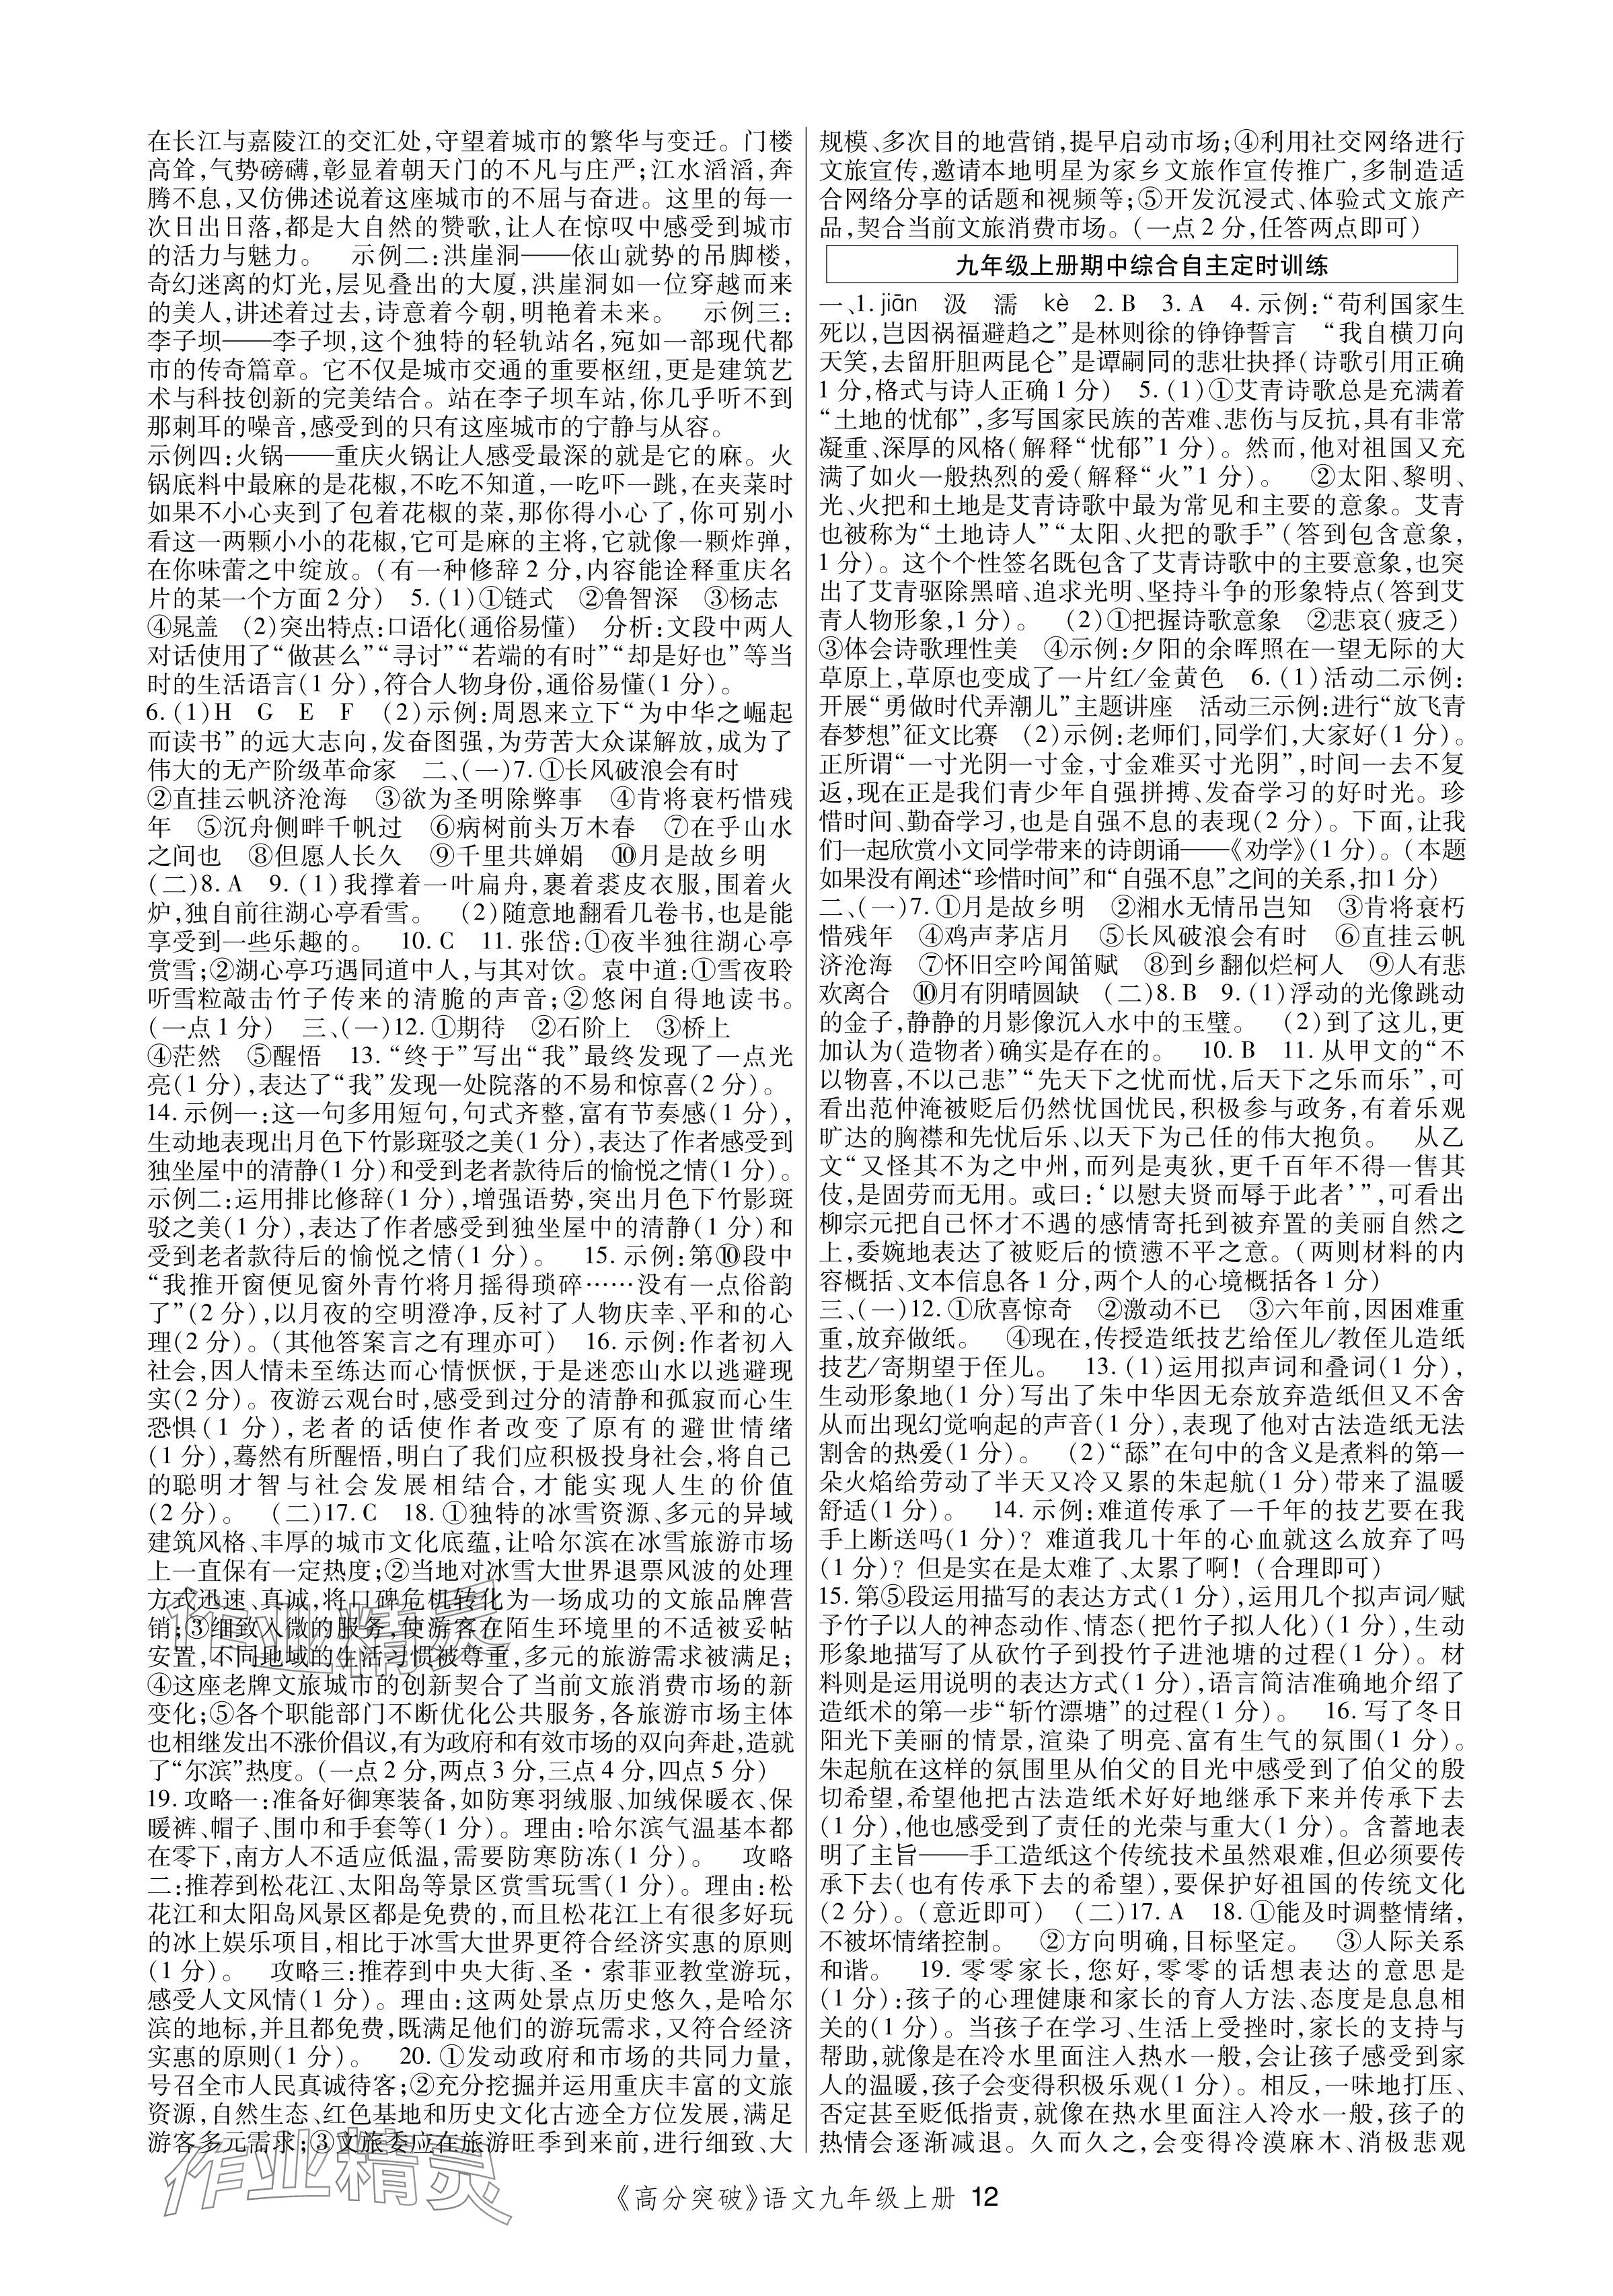 在长江与嘉陵江的交汇处,守望着城市的繁华与变迁。门楼
高耸,气势磅礴,彰显着朝天门的不凡与庄严;江水滔滔,奔
腾不息,又仿佛述说着这座城市的不屈与奋进。这里的每一
次日出日落,都是大自然的赞歌,让人在惊叹中感受到城市
的活力与魅力。 示例二:洪崖洞——依山就势的吊脚楼,
奇幻迷离的灯光,层见叠出的大厦,洪崖洞如一位穿越而来
的美人,讲述着过去,诗意着今朝,明艳着未来。 示例三:
李子坝——李子坝,这个独特的轻轨站名,宛如一部现代都
市的传奇篇章。它不仅是城市交通的重要枢纽,更是建筑艺
术与科技创新的完美结合。站在李子坝车站,你几乎听不到
那刺耳的噪音,感受到的只有这座城市的宁静与从容。
示例四:火锅——重庆火锅让人感受最深的就是它的麻。火
锅底料中最麻的是花椒,不吃不知道,一吃吓一跳,在夹菜时
如果不小心夹到了包着花椒的菜,那你得小心了,你可别小
看这一两颗小小的花椒,它可是麻的主将,它就像一颗炸弹,
在你味蕾之中绽放。(有一种修辞2分,内容能诠释重庆名
片的某一个方面2分) 5.(1)①链式 ②鲁智深 ③杨志
④晁盖 (2)突出特点:口语化(通俗易懂) 分析:文段中两人
对话使用了“做甚么”“寻讨”“若端的有时”“却是好也”等当
时的生活语言(1分),符合人物身份,通俗易懂(1分)。
6.(1)H G E F (2)示例:周恩来立下“为中华之崛起
而读书”的远大志向,发奋图强,为劳苦大众谋解放,成为了
伟大的无产阶级革命家 二、(一)7.①长风破浪会有时
②直挂云帆济沧海 ③欲为圣明除弊事 ④肯将衰朽惜残
年 ⑤沉舟侧畔千帆过 ⑥病树前头万木春 ⑦在乎山水
之间也 ⑧但愿人长久 ⑨千里共婵娟 ⑩月是故乡明
(二)8.A 9.(1)我撑着一叶扁舟,裹着裘皮衣服,围着火
炉,独自前往湖心亭看雪。 (2)随意地翻看几卷书,也是能
享受到一些乐趣的。 10.C 11.张岱:①夜半独往湖心亭
赏雪;②湖心亭巧遇同道中人,与其对饮。袁中道:①雪夜聆
听雪粒敲击竹子传来的清脆的声音;②悠闲自得地读书。
(一点1分) 三、(一)12.①期待 ②石阶上 ③桥上
④茫然 ⑤醒悟 13.“终于”写出“我”最终发现了一点光
亮(1分),表达了“我”发现一处院落的不易和惊喜(2分)。
14.示例一:这一句多用短句,句式齐整,富有节奏感(1分),
生动地表现出月色下竹影斑驳之美(1分),表达了作者感受到
独坐屋中的清静(1分)和受到老者款待后的愉悦之情(1分)。
示例二:运用排比修辞(1分),增强语势,突出月色下竹影斑
驳之美(1分),表达了作者感受到独坐屋中的清静(1分)和
受到老者款待后的愉悦之情(1分)。 15.示例:第⑩段中
“我推开窗便见窗外青竹将月摇得琐碎……没有一点俗韵
了”(2分),以月夜的空明澄净,反衬了人物庆幸、平和的心
理(2分)。(其他答案言之有理亦可) 16.示例:作者初入
社会,因人情未至练达而心情恹恹,于是迷恋山水以逃避现
实(2分)。夜游云观台时,感受到过分的清静和孤寂而心生
恐惧(1分),老者的话使作者改变了原有的避世情绪
(1分),蓦然有所醒悟,明白了我们应积极投身社会,将自己
的聪明才智与社会发展相结合,才能实现人生的价值
(2分)。 (二)17.C 18.①独特的冰雪资源、多元的异域
建筑风格、丰厚的城市文化底蕴,让哈尔滨在冰雪旅游市场
上一直保有一定热度;②当地对冰雪大世界退票风波的处理
方式迅速、真诚,将口碑危机转化为一场成功的文旅品牌营
销;③细致入微的服务,使游客在陌生环境里的不适被妥帖
安置,不同地域的生活习惯被尊重,多元的旅游需求被满足;
④这座老牌文旅城市的创新契合了当前文旅消费市场的新
变化;⑤各个职能部门不断优化公共服务,各旅游市场主体
也相继发出不涨价倡议,有为政府和有效市场的双向奔赴,造就
了“尔滨”热度。(一点2分,两点3分,三点4分,四点5分)
19.攻略一:准备好御寒装备,如防寒羽绒服、加绒保暖衣、保
暖裤、帽子、围巾和手套等(1分)。理由:哈尔滨气温基本都
在零下,南方人不适应低温,需要防寒防冻(1分)。 攻略
二:推荐到松花江、太阳岛等景区赏雪玩雪(1分)。理由:松
花江和太阳岛风景区都是免费的,而且松花江上有很多好玩
的冰上娱乐项目,相比于冰雪大世界更符合经济实惠的原则
(1分)。 攻略三:推荐到中央大街、圣·索菲亚教堂游玩,
感受人文风情(1分)。理由:这两处景点历史悠久,是哈尔
滨的地标,并且都免费,既满足他们的游玩需求,又符合经济
实惠的原则(1分)。 20.①发动政府和市场的共同力量,
号召全市人民真诚待客;②充分挖掘并运用重庆丰富的文旅
资源,自然生态、红色基地和历史文化古迹全方位发展,满足
游客多元需求;③文旅委应在旅游旺季到来前,进行细致、大
规模、多次目的地营销,提早启动市场;④利用社交网络进行
文旅宣传,邀请本地明星为家乡文旅作宣传推广,多制造适
合网络分享的话题和视频等;⑤开发沉浸式、体验式文旅产
品,契合当前文旅消费市场。(一点2分,任答两点即可)
九年级上册期中综合自主定时训练
一、1.jiān 汲 濡 kè 2.B 3.A 4.示例:“苟利国家生
死以,岂因祸福避趋之”是林则徐的铮铮誓言 “我自横刀向
天笑,去留肝胆两昆仑”是谭嗣同的悲壮抉择(诗歌引用正确
1分,格式与诗人正确1分) 5.(1)①艾青诗歌总是充满着
“土地的忧郁”,多写国家民族的苦难、悲伤与反抗,具有非常
凝重、深厚的风格(解释“忧郁”1分)。然而,他对祖国又充
满了如火一般热烈的爱(解释“火”1分)。 ②太阳、黎明、
光、火把和土地是艾青诗歌中最为常见和主要的意象。艾青
也被称为“土地诗人”“太阳、火把的歌手”(答到包含意象,
1分)。这个个性签名既包含了艾青诗歌中的主要意象,也突
出了艾青驱除黑暗、追求光明、坚持斗争的形象特点(答到艾
青人物形象,1分)。 (2)①把握诗歌意象 ②悲哀(疲乏)
③体会诗歌理性美 ④示例:夕阳的余晖照在一望无际的大
草原上,草原也变成了一片红/金黄色 6.(1)活动二示例:
开展“勇做时代弄潮儿”主题讲座 活动三示例:进行“放飞青
春梦想”征文比赛 (2)示例:老师们,同学们,大家好(1分)。
正所谓“一寸光阴一寸金,寸金难买寸光阴”,时间一去不复
返,现在正是我们青少年自强拼搏、发奋学习的好时光。珍
惜时间、勤奋学习,也是自强不息的表现(2分)。下面,让我
们一起欣赏小文同学带来的诗朗诵——《劝学》(1分)。(本题
如果没有阐述“珍惜时间”和“自强不息”之间的关系,扣1分)
二、(一)7.①月是故乡明 ②湘水无情吊岂知 ③肯将衰朽
惜残年 ④鸡声茅店月 ⑤长风破浪会有时 ⑥直挂云帆
济沧海 ⑦怀旧空吟闻笛赋 ⑧到乡翻似烂柯人 ⑨人有悲
欢离合 ⑩月有阴晴圆缺 (二)8.B 9.(1)浮动的光像跳动
的金子,静静的月影像沉入水中的玉璧。 (2)到了这儿,更
加认为(造物者)确实是存在的。 10.B 11.从甲文的“不
以物喜,不以己悲”“先天下之忧而忧,后天下之乐而乐”,可
看出范仲淹被贬后仍然忧国忧民,积极参与政务,有着乐观
旷达的胸襟和先忧后乐、以天下为己任的伟大抱负。 从乙
文“又怪其不为之中州,而列是夷狄,更千百年不得一售其
伎,是固劳而无用。或曰:‘以慰夫贤而辱于此者’”,可看出
柳宗元把自己怀才不遇的感情寄托到被弃置的美丽自然之
上,委婉地表达了被贬后的愤懑不平之意。(两则材料的内
容概括、文本信息各1分,两个人的心境概括各1分)
三、(一)12.①欣喜惊奇 ②激动不已 ③六年前,因困难重
重,放弃做纸。 ④现在,传授造纸技艺给侄儿/教侄儿造纸
技艺/寄期望于侄儿。 13.(1)运用拟声词和叠词(1分),
生动形象地(1分)写出了朱中华因无奈放弃造纸但又不舍
从而出现幻觉响起的声音(1分),表现了他对古法造纸无法
割舍的热爱(1分)。 (2)“舔”在句中的含义是煮料的第一
朵火焰给劳动了半天又冷又累的朱起航(1分)带来了温暖
舒适(1分)。 14.示例:难道传承了一千年的技艺要在我
手上断送吗(1分)?难道我几十年的心血就这么放弃了吗
(1分)?但是实在是太难了、太累了啊!(合理即可)
15.第⑤段运用描写的表达方式(1分),运用几个拟声词/赋
予竹子以人的神态动作、情态(把竹子拟人化)(1分),生动
形象地描写了从砍竹子到投竹子进池塘的过程(1分)。材
料则是运用说明的表达方式(1分),语言简洁准确地介绍了
造纸术的第一步“斩竹漂塘”的过程(1分)。 16.写了冬日
阳光下美丽的情景,渲染了明亮、富有生气的氛围(1分)。
朱起航在这样的氛围里从伯父的目光中感受到了伯父的殷
切希望,希望他把古法造纸术好好地继承下来并传承下去
(1分),他也感受到了责任的光荣与重大(1分)。含蓄地表
明了主旨——手工造纸这个传统技术虽然艰难,但必须要传
承下去(也有传承下去的希望),要保护好祖国的传统文化
(2分)。(意近即可) (二)17.A 18.①能及时调整情绪,
不被坏情绪控制。 ②方向明确,目标坚定。 ③人际关系
和谐。 19.零零家长,您好,零零的话想表达的意思是
(1分):孩子的心理健康和家长的育人方法、态度是息息相
关的(1分)。当孩子在学习、生活上受挫时,家长的支持与
帮助,就像是在冷水里面注入热水一般,会让孩子感受到家
人的温暖,孩子会变得积极乐观(1分)。相反,一味地打压、
否定甚至贬低指责,就像在热水里面注入冷水一般,孩子的
热情会逐渐减退。久而久之,会变得冷漠麻木、消极悲观
作业精灵
作业精灵
《高分突破》语文九年级上册 12